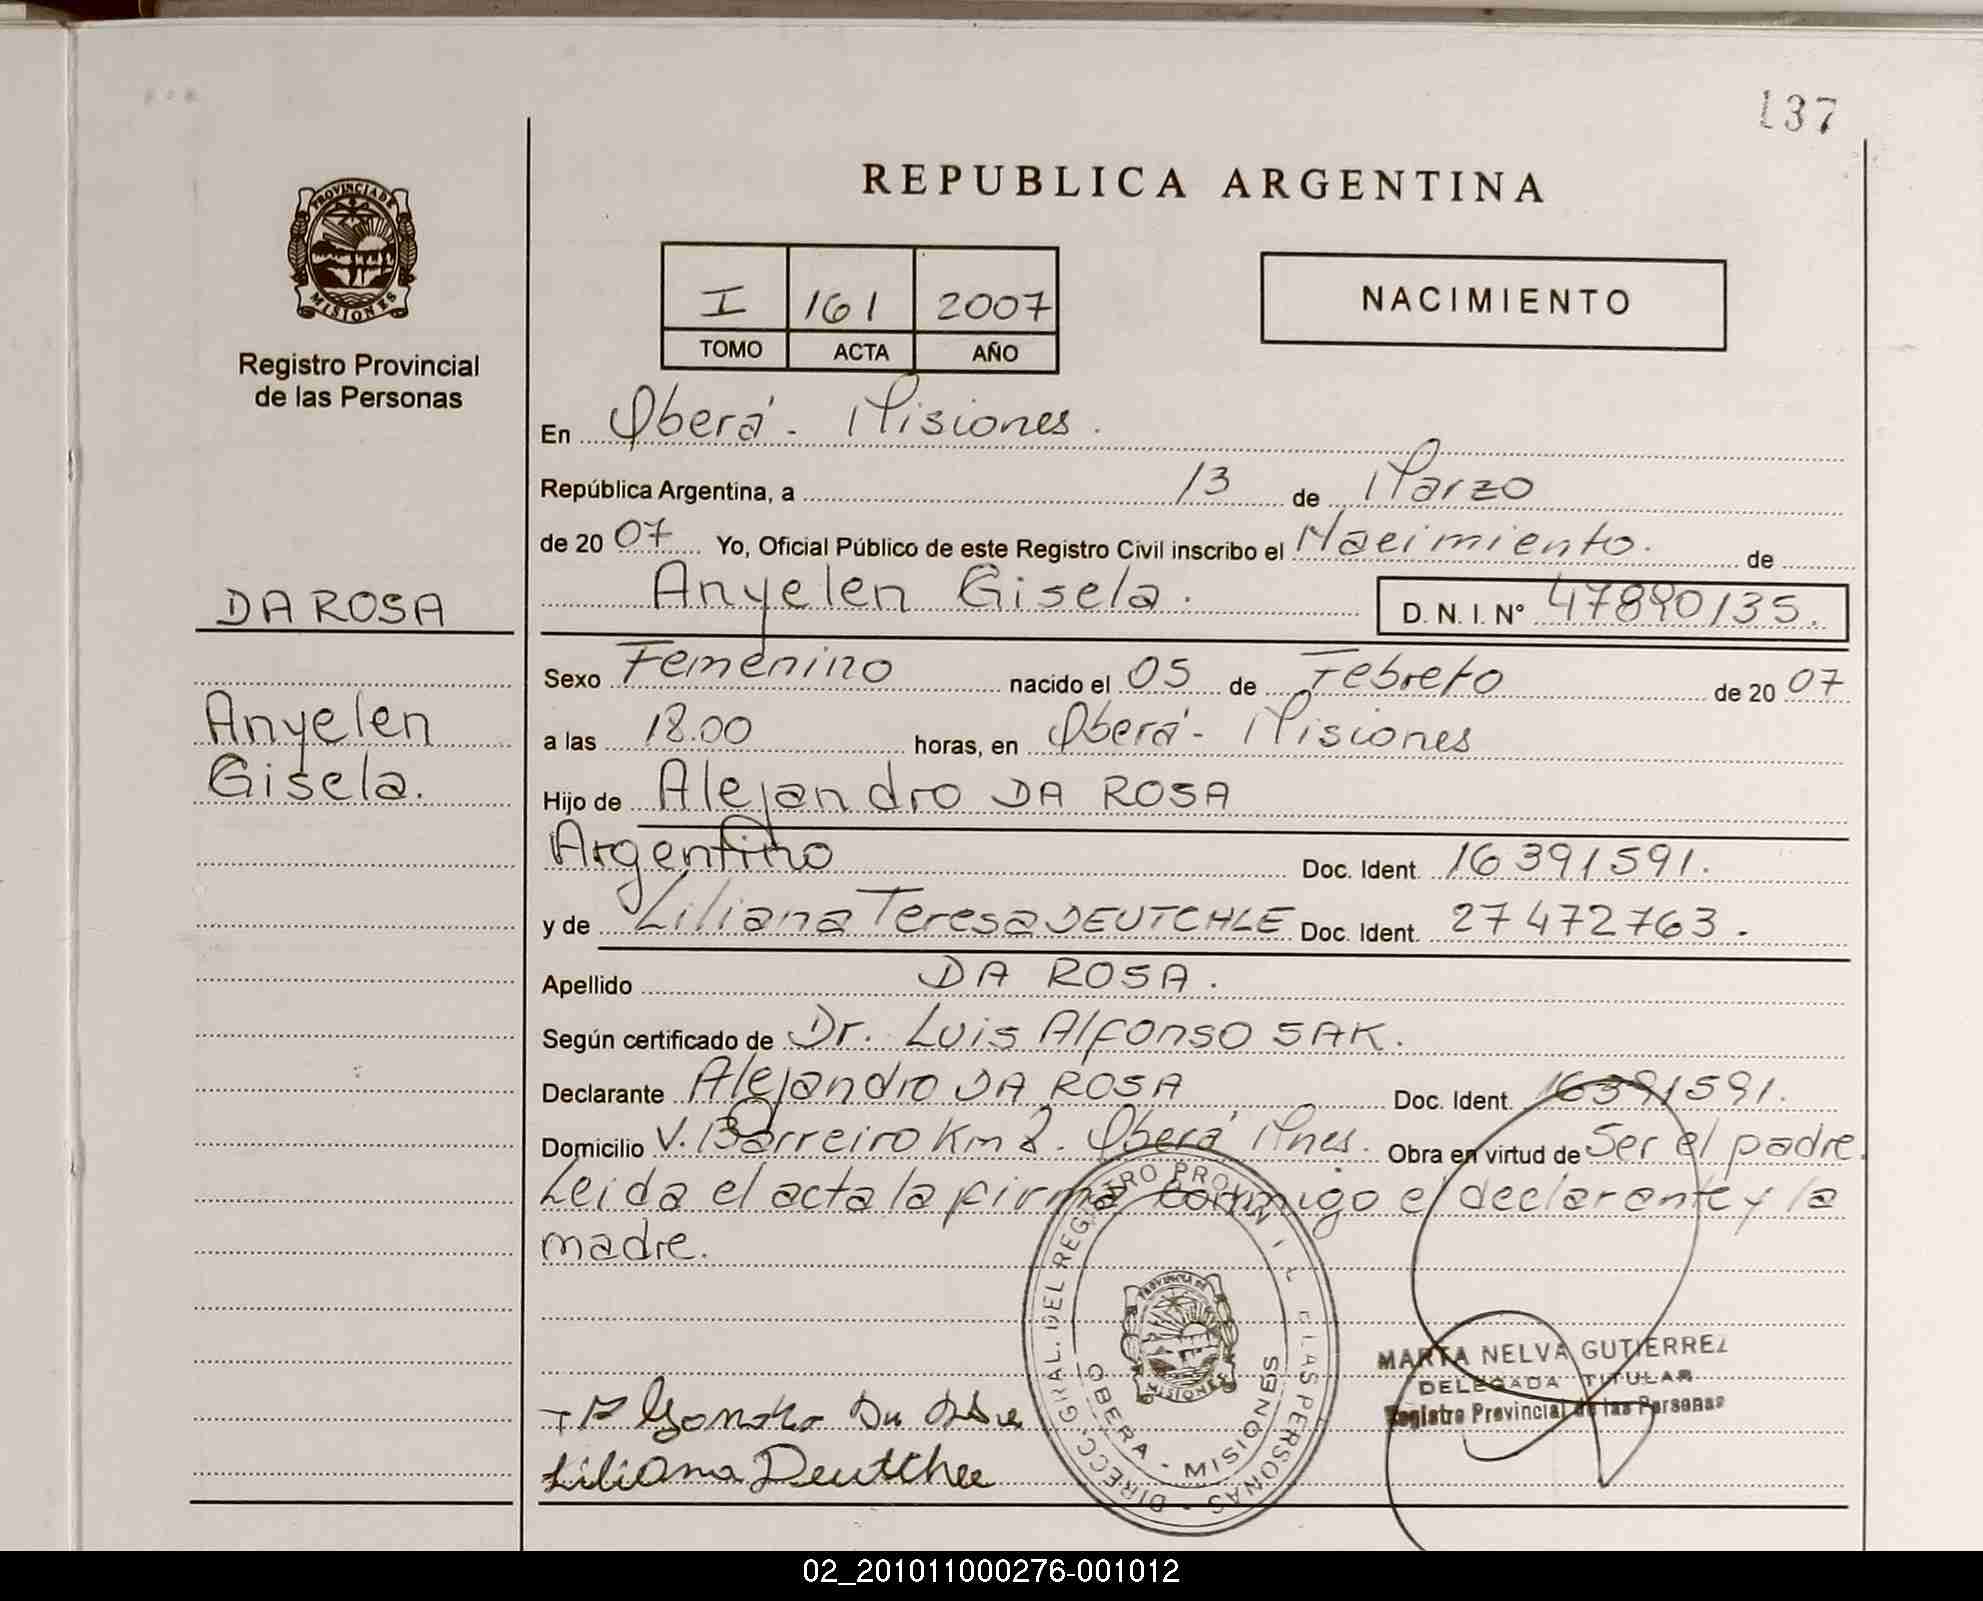 137
PROVINCIA DE
MISIONES
Registro Provincial
de las Personas
REPUBLICA ARGENTINA
I 161 2007
TOMO ACTA AÑO
NACIMIENTO
En Oberá - Misiones.
República Argentina, a 13 de Marzo
de 2007 Yo, Oficial Público de este Registro Civil inscribo el Nacimiento. de
Anyelen Gisela. D. N. I. Nº 47890135.
DA ROSA
Anyelen
Gisela.
Sexo Femenino nacido el 05 de Febrero de 2007
a las 18.00 horas, en Oberá - Misiones
Hijo de Alejandro DA ROSA
Argentino Doc. Ident. 16391591.
y de Liliana Teresa DEUTCHLE Doc. Ident. 27472763.
Apellido DA ROSA.
Según certificado de Dr. Luis Alfonso SAK.
Declarante Alejandro DA ROSA Doc. Ident. 16391591.
Domicilio V. Barreiro Km 2. Oberá Mnes. Obra en virtud de Ser el padre.
Leida el acta la firma conmigo el declarante y la
madre.
DIRECC. GRAL. DEL REGISTRO PROVIN L E LAS PERSONAS
PROVINCIA DE
MISIONES
OBERA - MISIONES
MARTA NELVA GUTIERREZ
DELEGADA TITULAR
Registro Provincial de las Personas
Liliana Deutchle
02_201011000276-001012